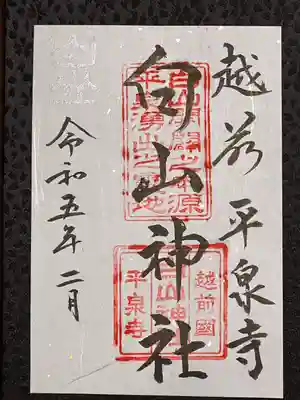 越前 平泉寺
白山神社
令和五年二月
白山開闢之本源
平泉湧出之地
越前國
白山神社
平泉寺